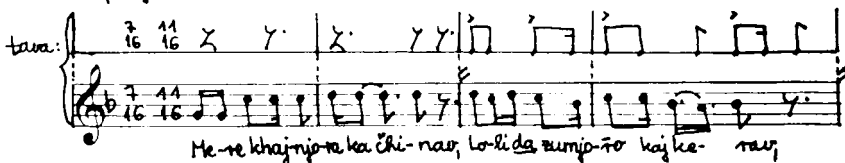 tava: 7 16 11 16
7 16 11 16
Me-re khaj-njo-re ka čhi-nav, Lo-li da zumjo-řo kaj ke- rav,